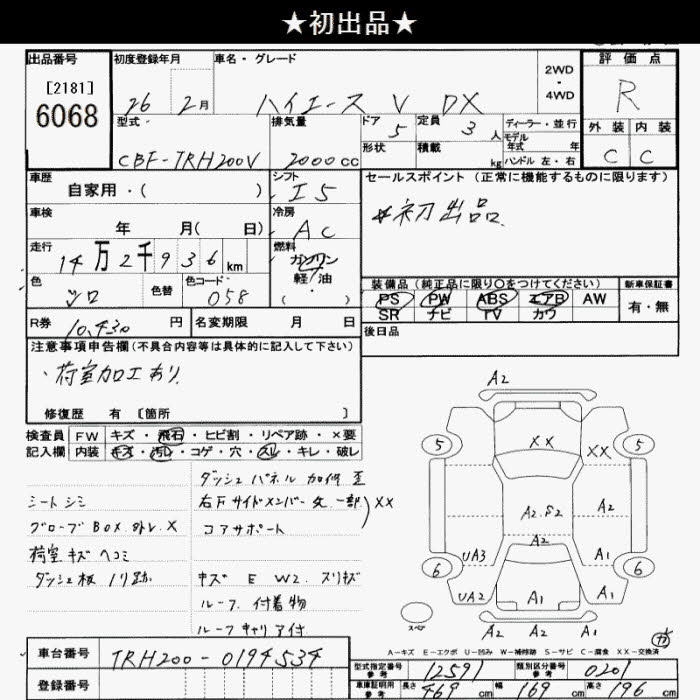 ★初出品★
出品番号
[2181]
6068
初度登録年月
26 2月
車名・グレード
ハイエース V DX
2WD
・
4WD
評価点
R
型式
CBF-TRH200V
排気量
2000cc
ドア
5
形状
定員
3人
積載
kg
ディーラー・並行
モデル
年式 年
ハンドル 左・右
外装 内装
C C
車歴
自家用・( )
シフト
I5
セールスポイント(正常に機能するものに限ります)
*初出品
車検
年 月( 日)
冷房
AC
走行
14万2千936km
燃料
ガソリン
軽・油
・
( )
色
シロ
色替
色コード
058
装備品(純正品に限り○をつけてください)
PS PW ABS エアB AW
SR ナビ TV カワ
新車保証書
有・無
R券
10,430円
名変期限 月 日
後日品
注意事項申告欄(不具合内容等は具体的に記入して下さい)
・荷室加工あり
修復歴 有〔箇所 〕
検査員
記入欄
FW キズ・飛石・ヒビ割・リペア跡・×要
内装 キズ・汚レ・コゲ・穴・スレ・キレ・破レ
シートシミ
グローブBOX外レ×
荷室キズヘコミ
ダッシュ板ノリ跡
ダッシュパネル加修歪
右フサイドメンバー交一部)XX
コアサポート
キズ E W2 スリキズ
ルーフ付着物
ルーフキャリア付
A2
5
XX
XX
5
A2.S2
A2
A2
UA3
A1
6
6
UA2
A1
A1
A2 A2 A1
スペア
A-キズ E-エクボ U-凹み W-補修跡 S-サビ C-腐食 XX-交換済
車台番号
TRH200-0194534
登録番号
型式指定番号
参考
12591
類別区分番号
参考
0201
車庫証明用
参考
長さ 469cm
幅 169cm
高さ 196cm